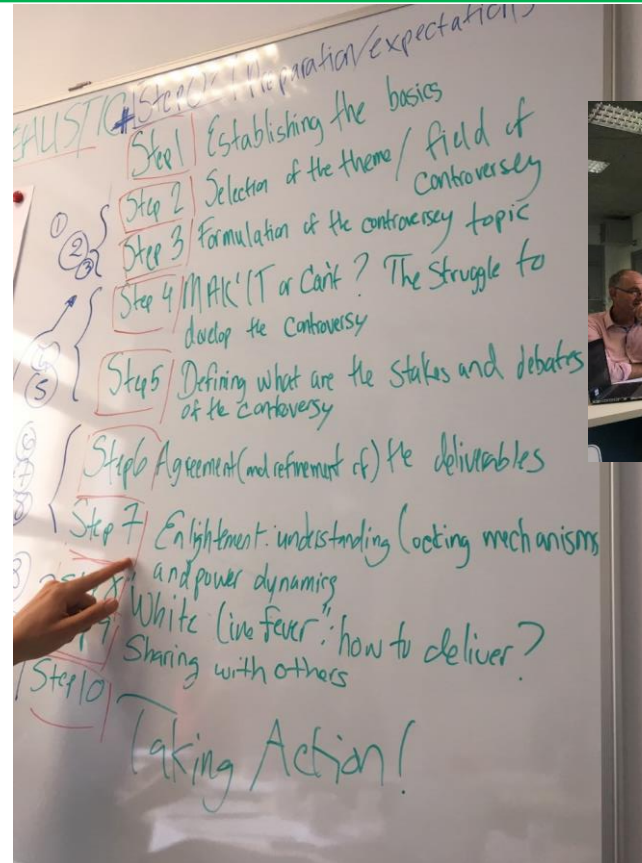 EALISTIC #Step 0: Preparation/expectations
Step 1 Establishing the basics
Step 2 Selection of the theme / field of
controversey
Step 3 Formulation of the controversey topic
Step 4 MAK'IT or Can't? The Struggle to
develop the controversy
Step 5 Defining what are the stakes and debates
of the contoversy
Step 6 Agreement (and refinement of) the deliverables
Step 7 Enlightement: understanding locking mechanisms
and power dynamics
"White line fever": how to deliver?
Sharing with others
Step 10
Taking Action!
1
2
3
5
8